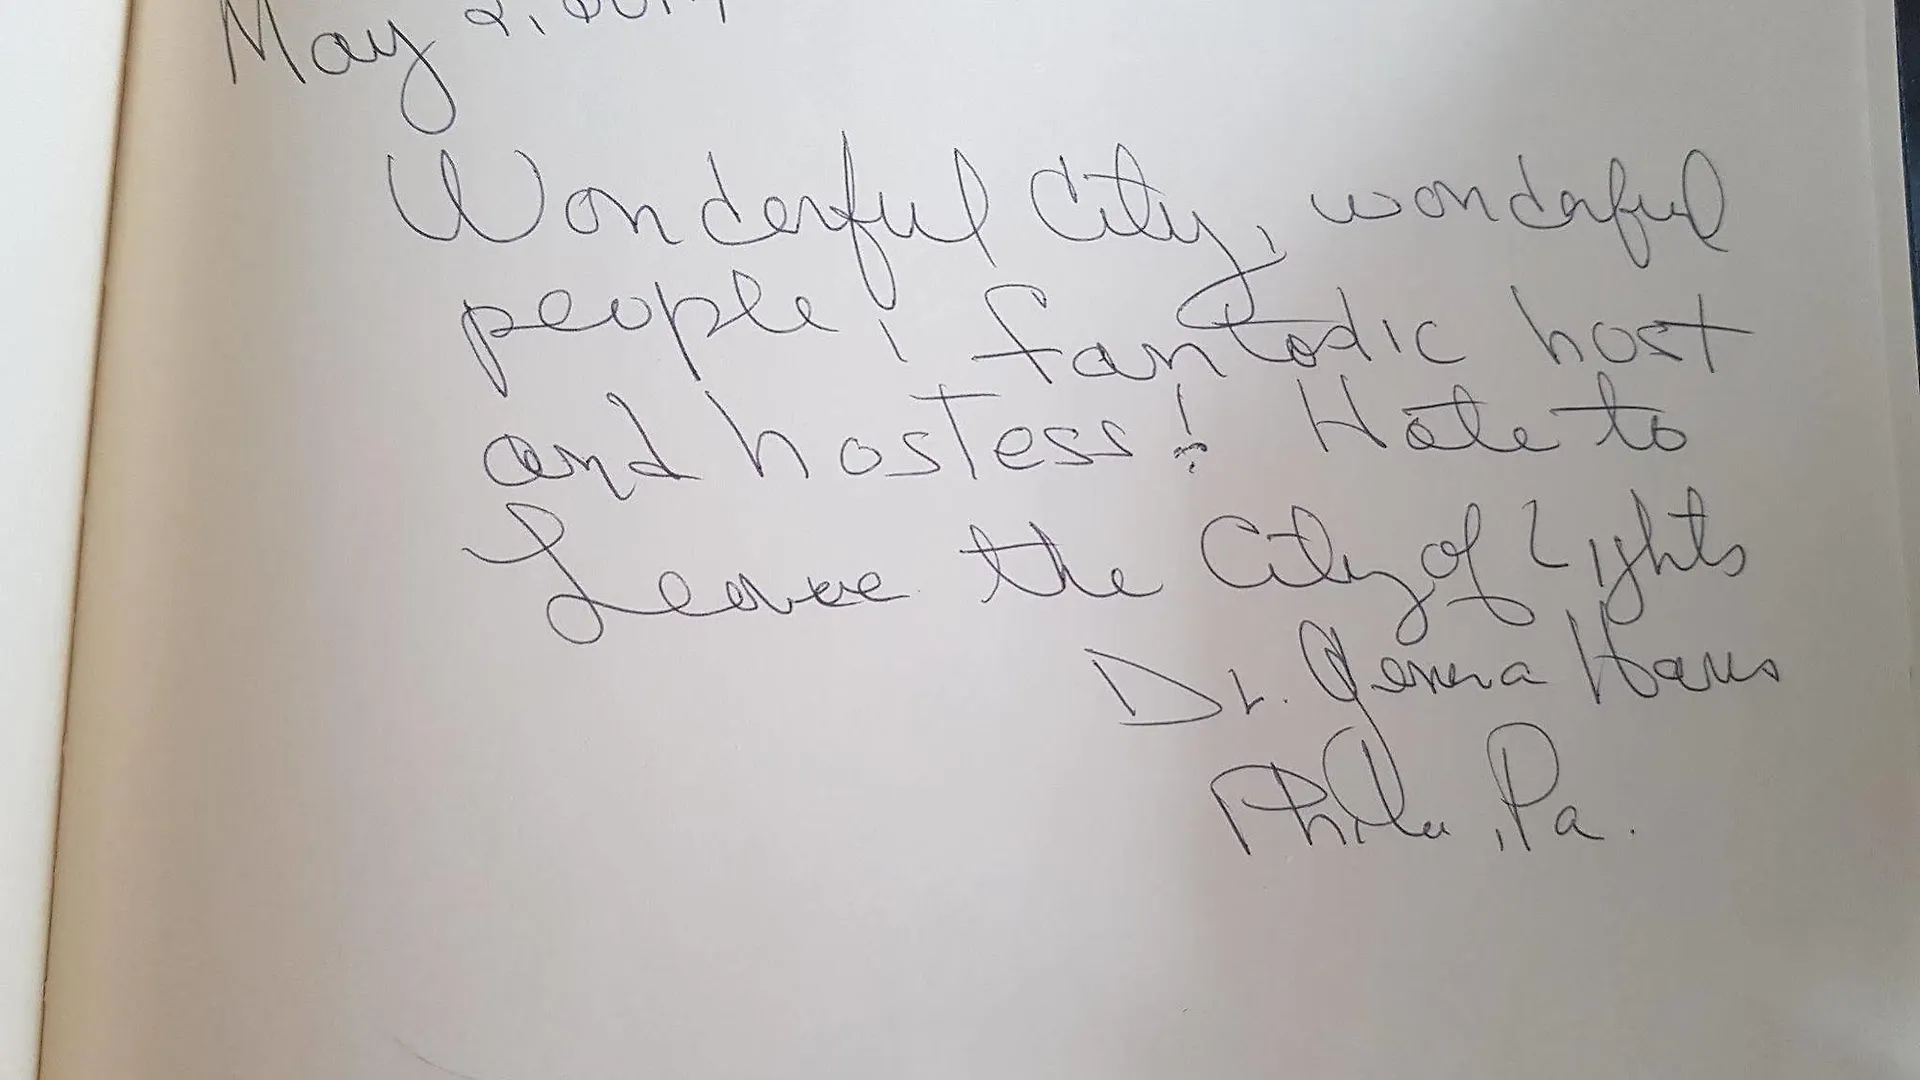 May 2,
Wonderful City, wonderful
people, fantastic host
and hostess! Hate to
Leave the City of Lights
Dr.
Phila, Pa.